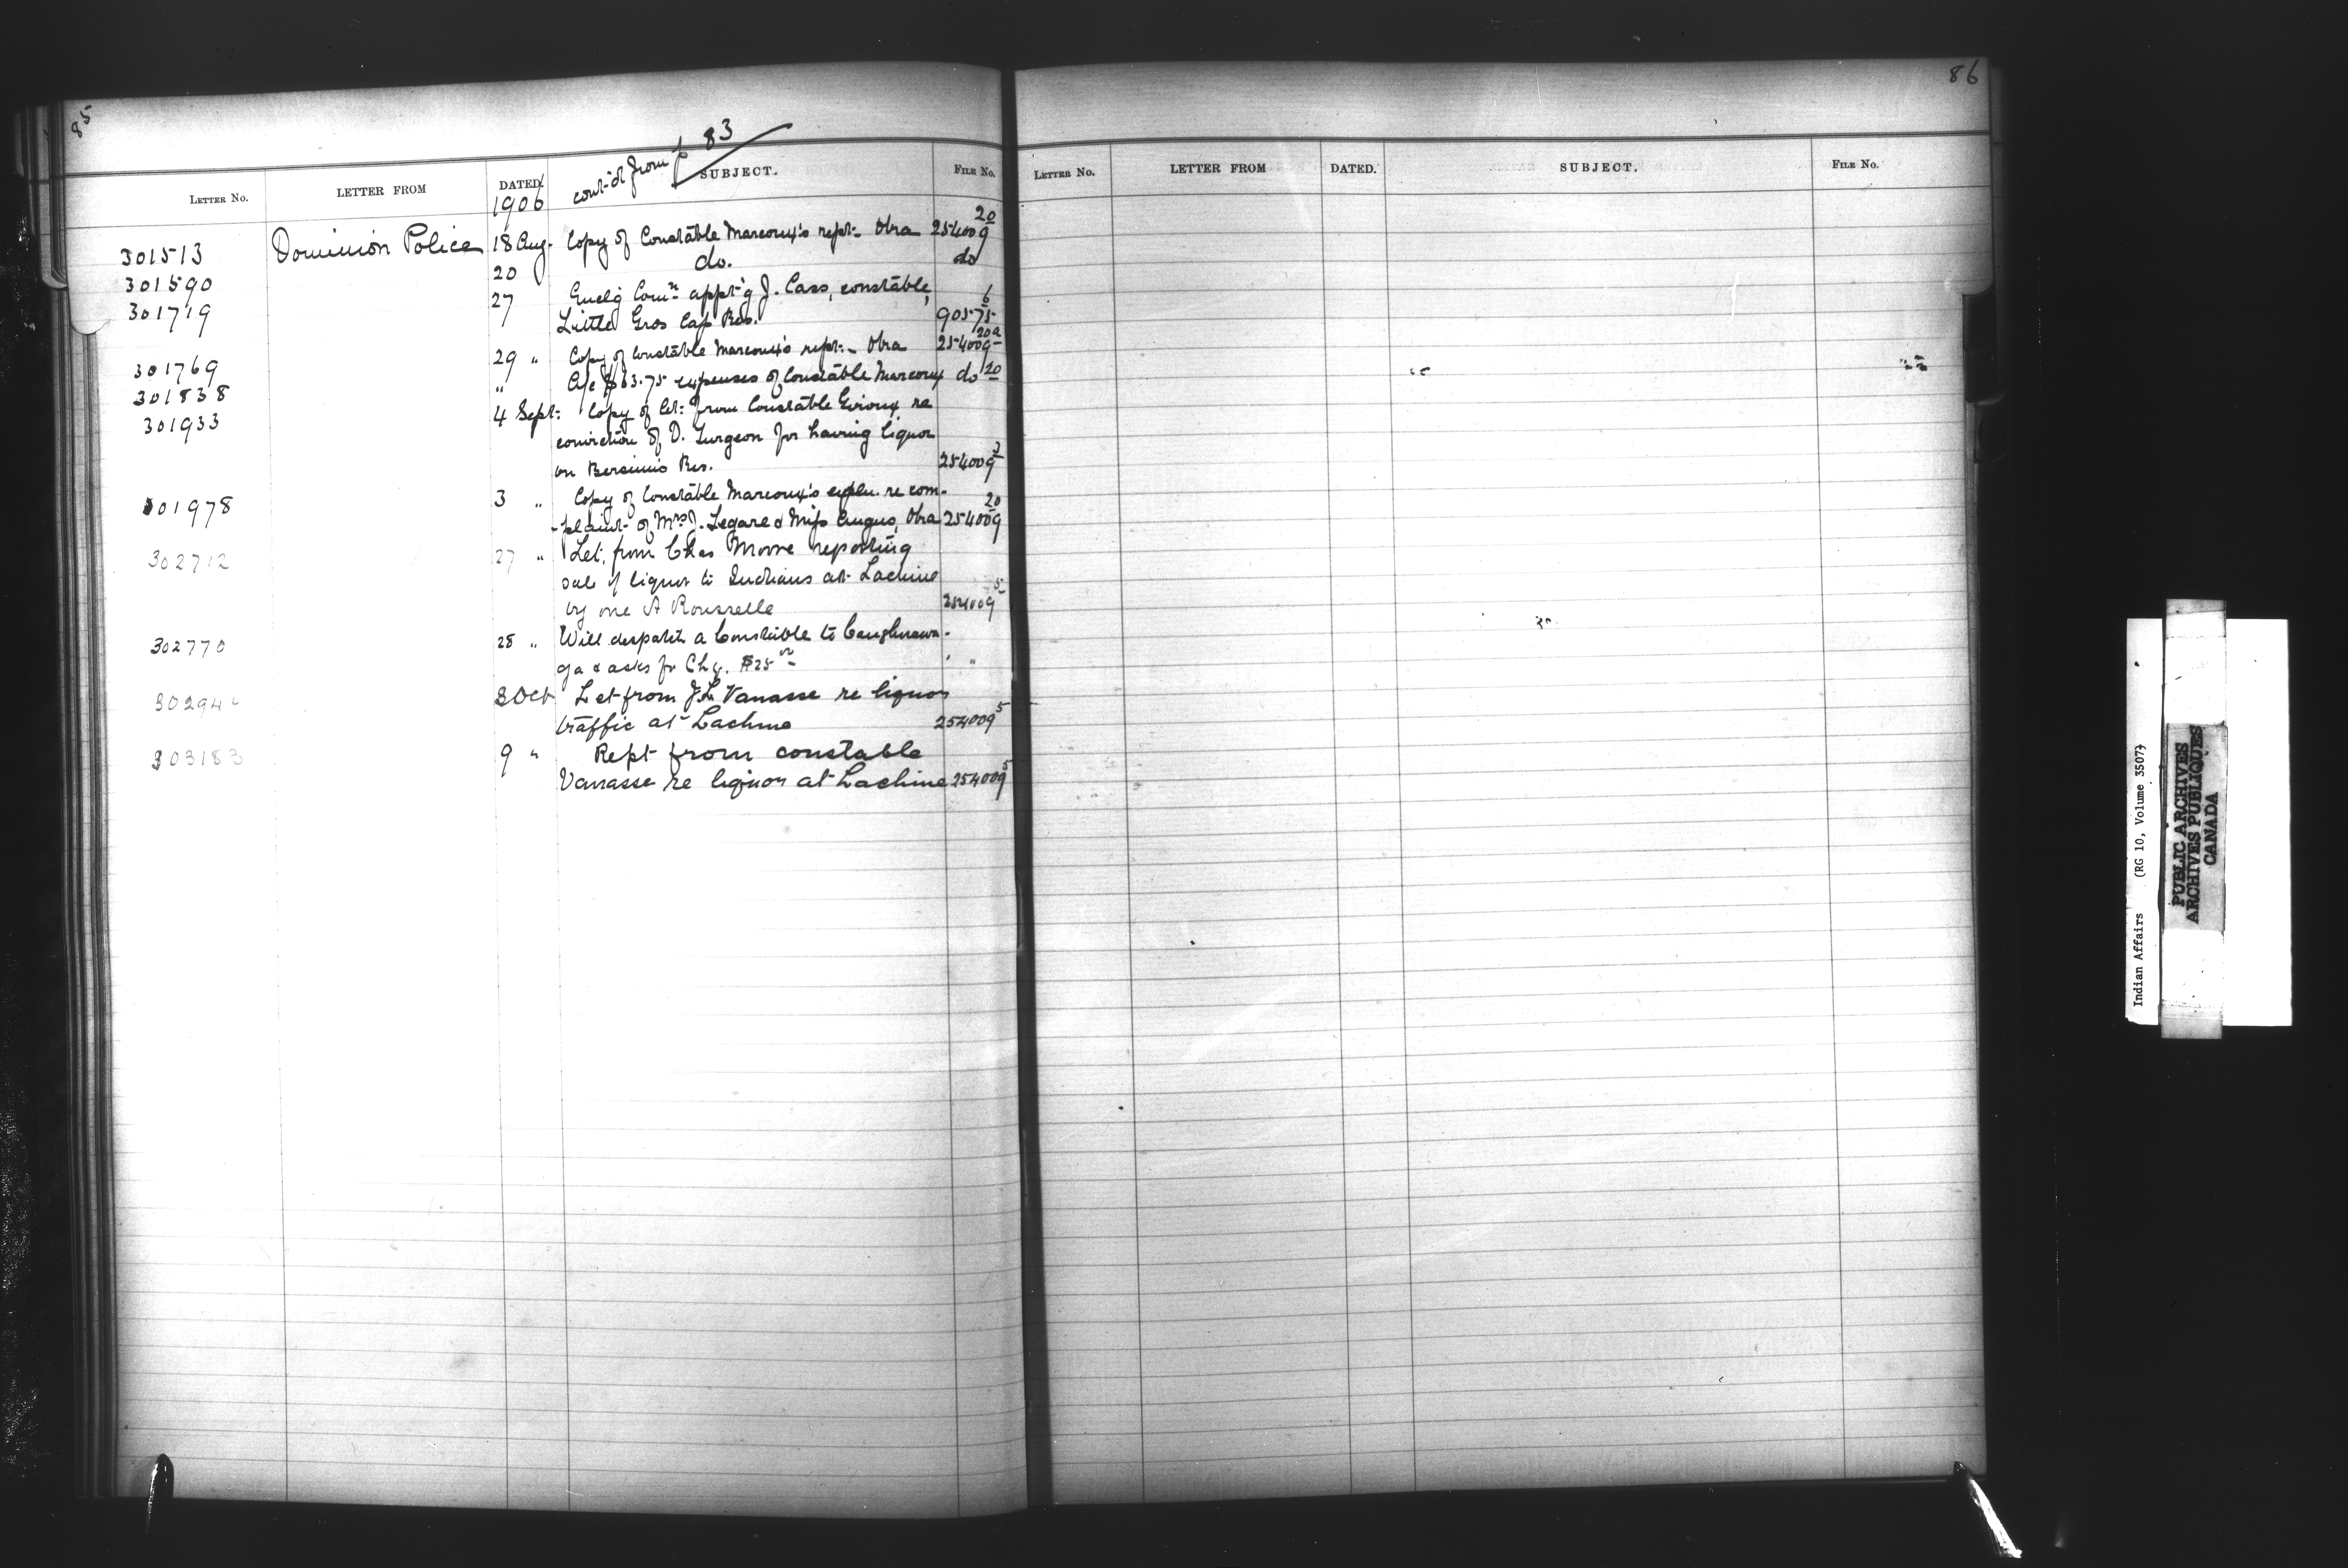 85
cont'd from p 83
LETTER NO. LETTER FROM DATED. SUBJECT. FILE NO.
1906
301513 Dominion Police 18 Aug. Copy of Constable Marcoux's rept - Oka 254009 20
301590 20 do. do
301719 27 Enclg Comn appt'g J. Cass, constable,
Little Gros Cap Res. 90575 6
301769 29 " Copy of Constable Marcoux's rept. - Oka 254009 20a
301838 " A/c $63.75 expenses of Constable Marcoux do 20
301933 4 Sept: Copy of let: from Constable Girioux re
conviction of D. Turgeon for having liquor
on Bersimis Res. 254009
301978 3 " Copy of Constable Marcoux's expln. re com-
-plaint of Mrs J. Legare & Miss Angus, Oka 254009 20
302712 27 " Let. from Chas Moore reporting
sale of liquor to Indians at Lachine
by one A Rousselle 254009 5
302770 28 " Will despatch a Constable to Caughnawa-
ga & asks for Chq. $25 " "
30294 3 Oct Let from J.L. Vanasse re liquor
traffic at Lachine 254009 5
303183 9 " Rept from constable
Vanasse re liquor at Lachine 254009 5
86
LETTER NO. LETTER FROM DATED. SUBJECT. FILE NO.
Indian Affairs (RG 10, Volume 3507)
PUBLIC ARCHIVES
ARCHIVES PUBLIQUES
CANADA